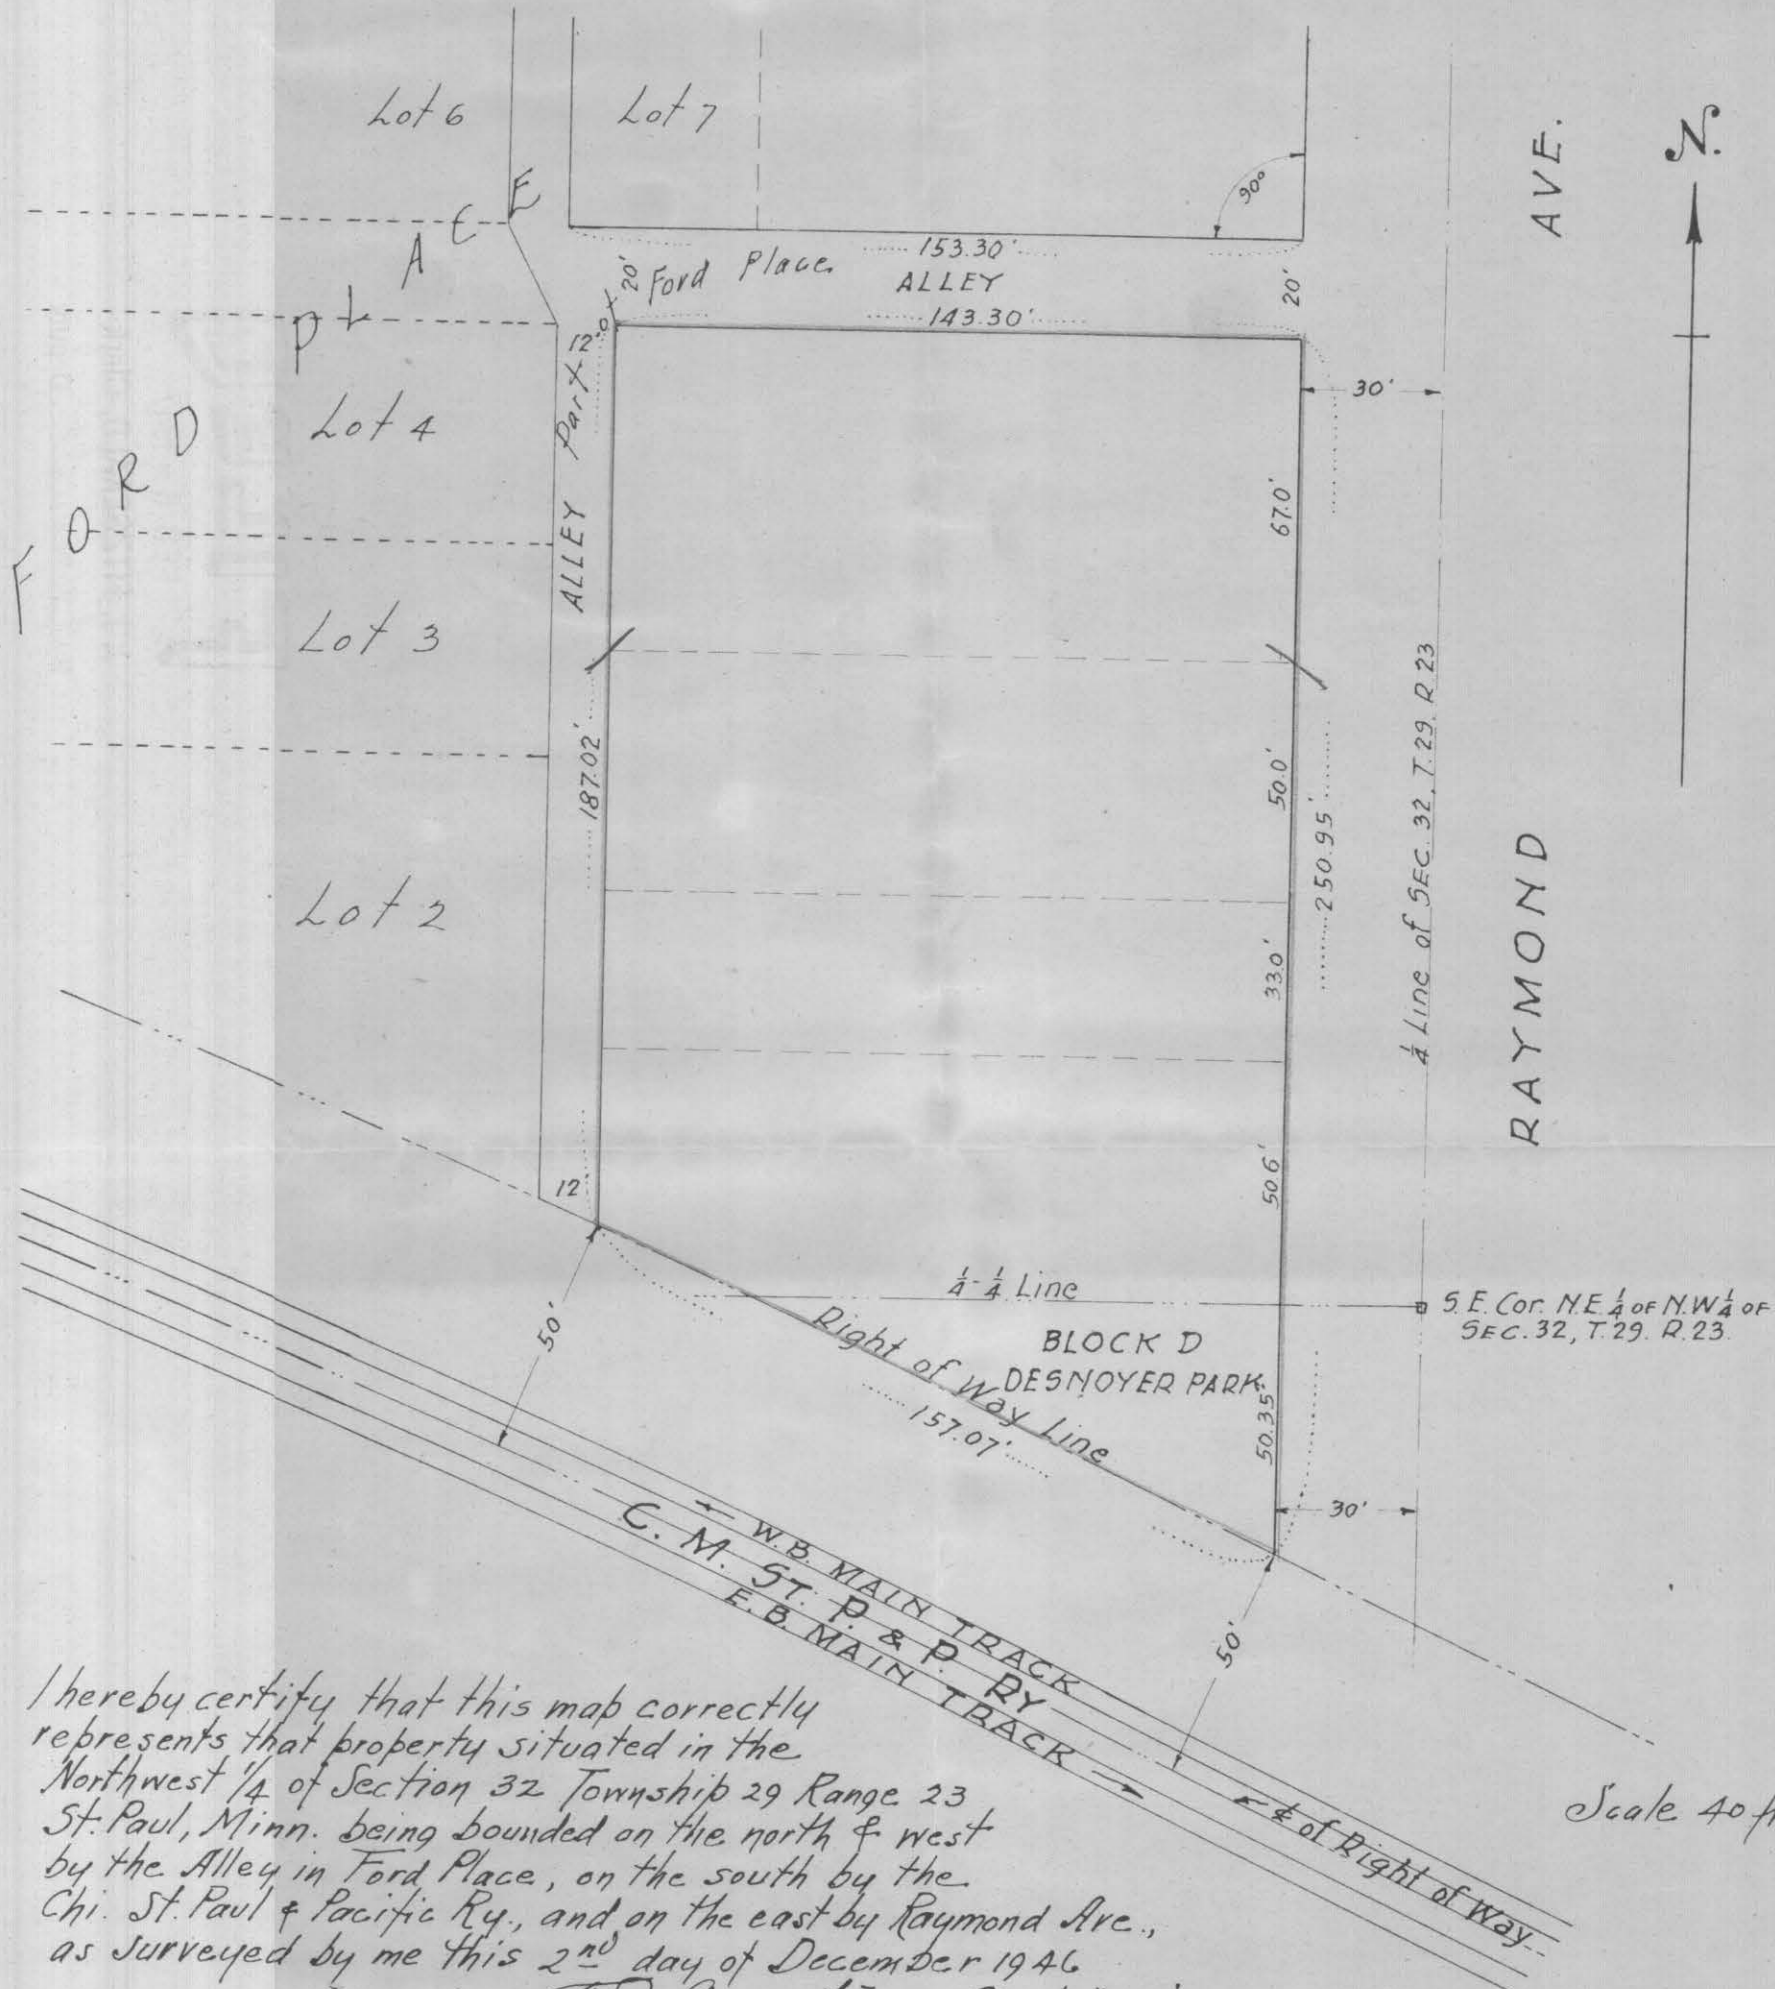 Lot 6
Lot 7
AVE.
N.
90°
FORD PLACE
153.30'
20'
Ford Place
ALLEY
20'
143.30'
12'
30'
Lot 4
ALLEY Part
67.0'
Lot 3
187.02'
50.0'
250.95'
1/4 Line of SEC. 32, T. 29. R. 23
RAYMOND
Lot 2
33.0'
12
50.6'
1/4-1/4 Line
S.E. Cor. N.E 1/4 OF N.W 1/4 OF
SEC. 32, T. 29. R. 23.
50'
Right of Way Line
BLOCK D
DESNOYER PARK
157.07'
50.35'
30'
W.B. MAIN TRACK
C. M. ST. P. & P. RY
E.B. MAIN TRACK
50'
℄ of Right of Way
Scale 40 ft
I hereby certify that this map correctly
represents that property situated in the
Northwest 1/4 of Section 32 Township 29 Range 23
St. Paul, Minn. being bounded on the north & west
by the Alley in Ford Place, on the south by the
Chi. St. Paul & Pacific Ry., and on the east by Raymond Ave.,
as surveyed by me this 2nd day of December 1946